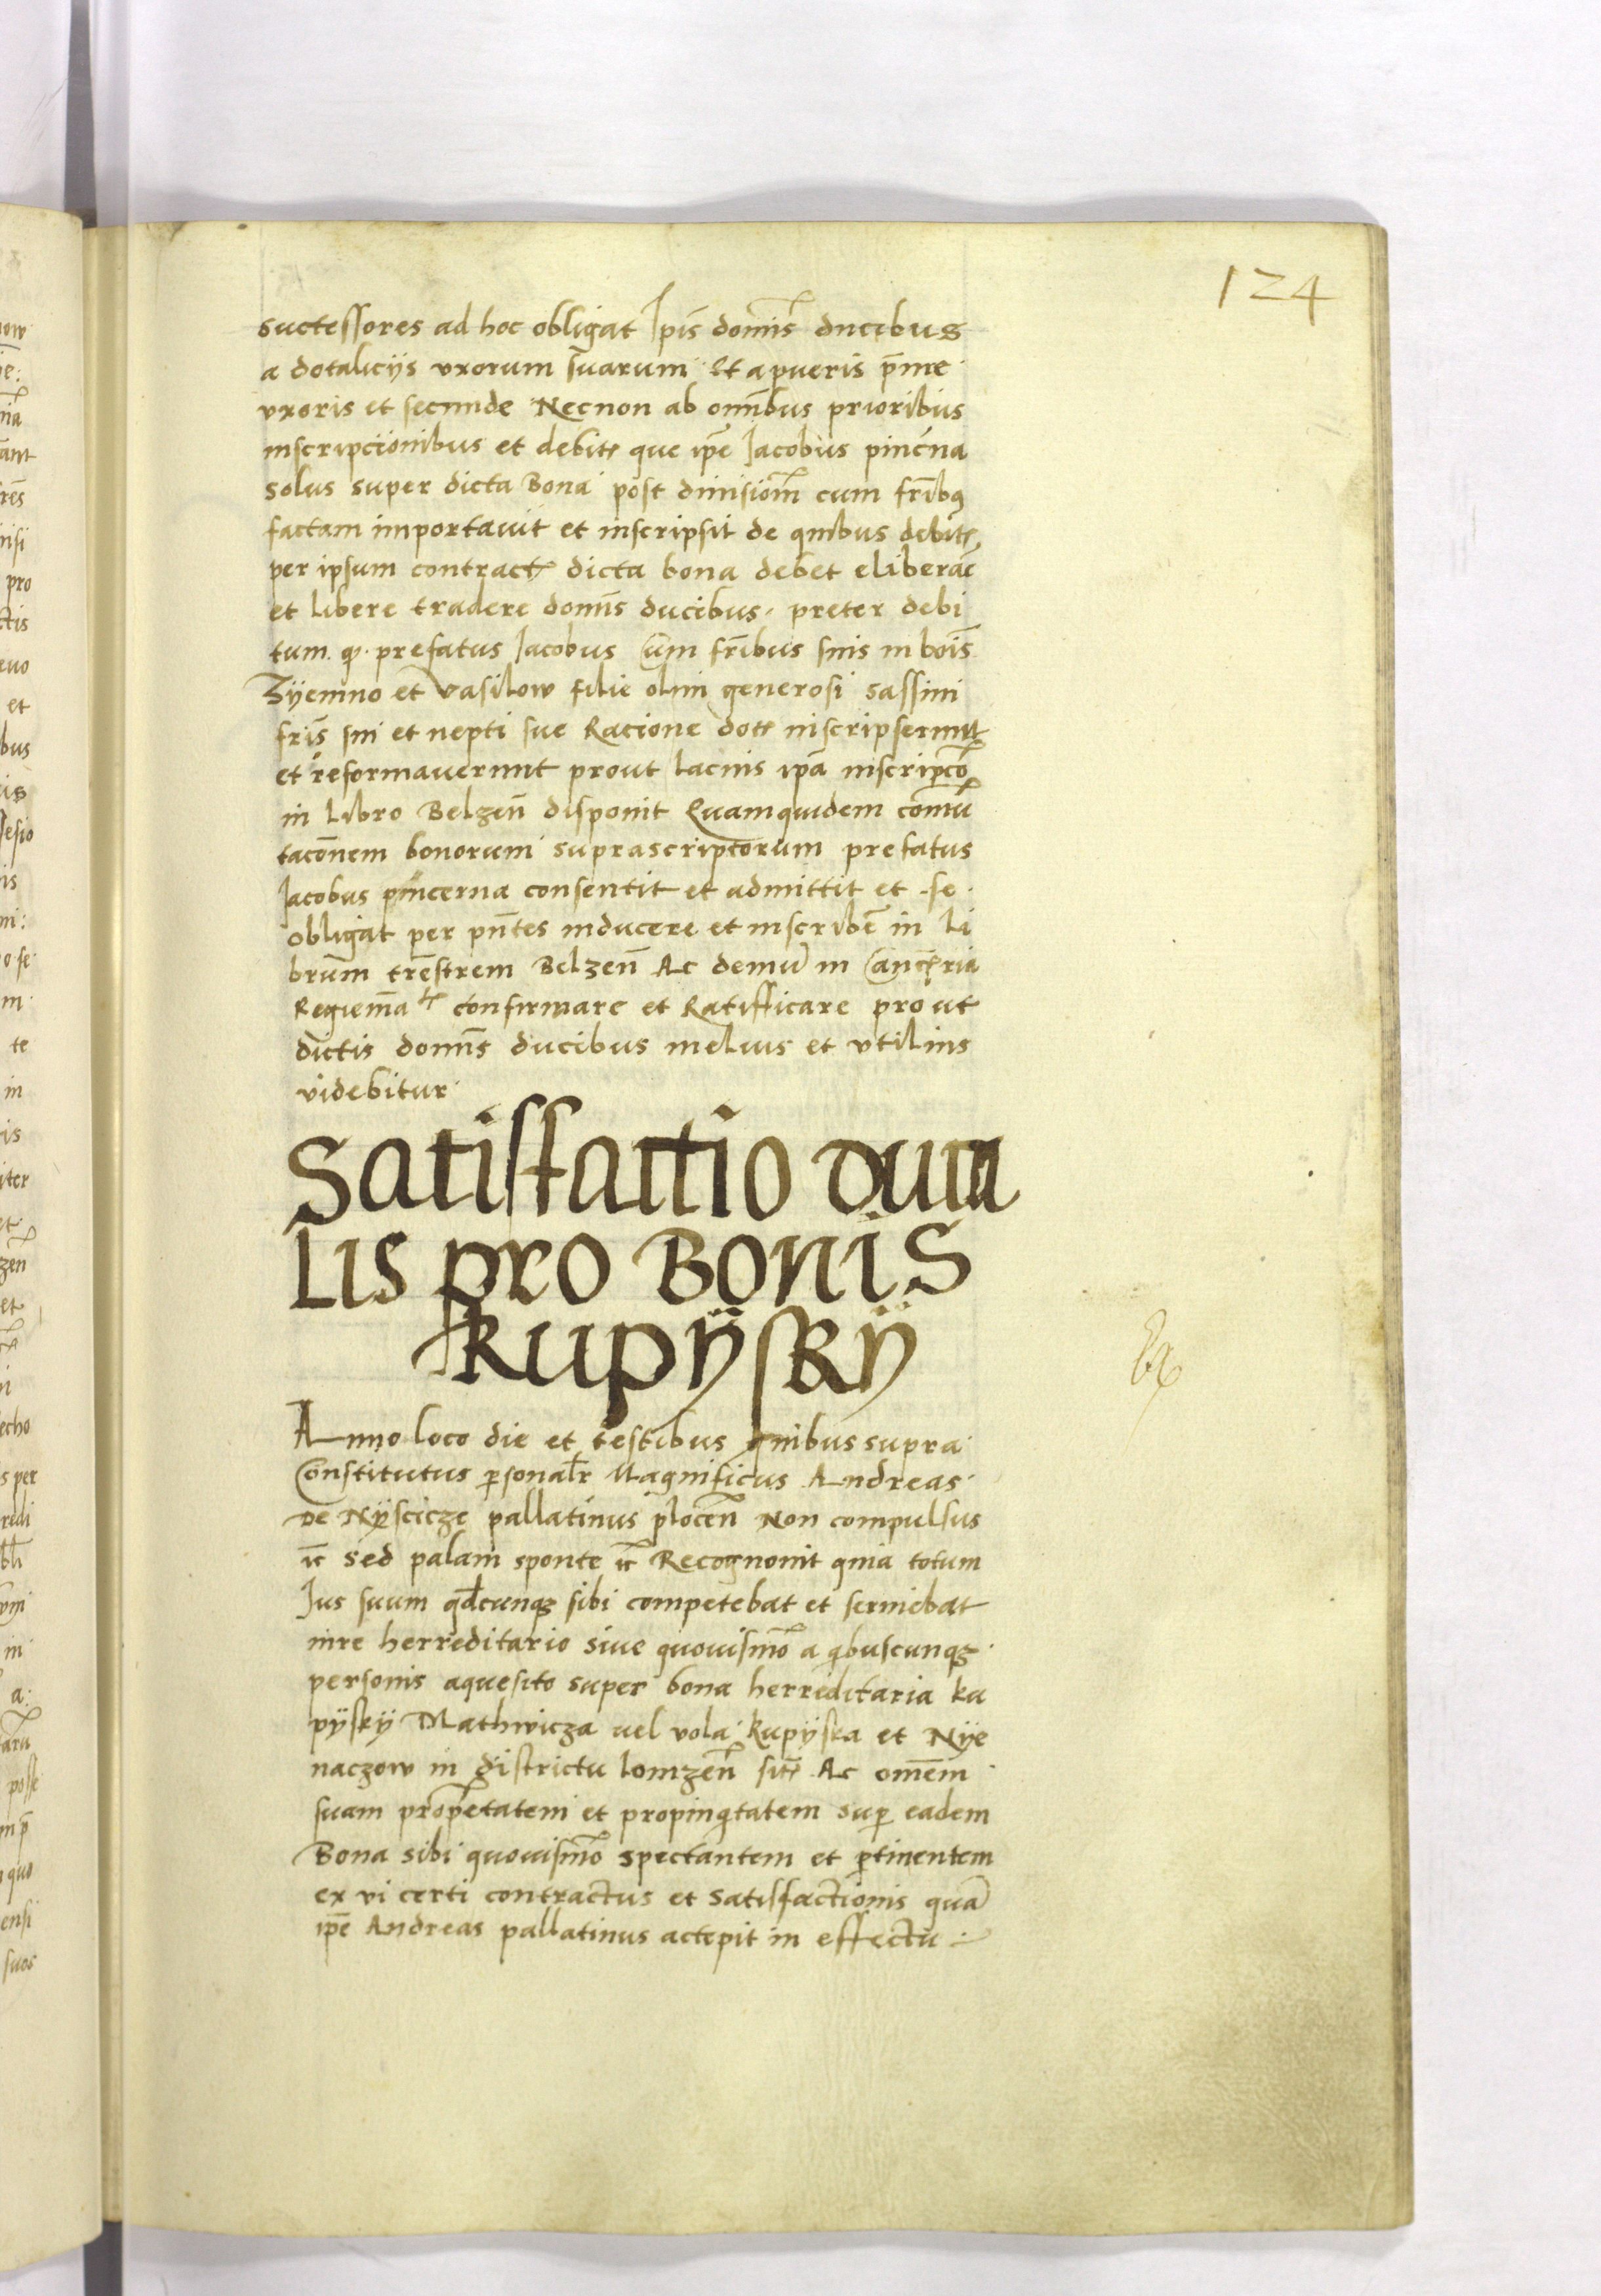 124
successores ad hoc obligat Ipīs domīs ducibus
a dotaliciis vxorum suarum Et a pueris p̄me
vxoris et secunde Necnon ab om̄ibus prioribus
inscripcionibus et debitꝭ que ip̄e Iacobus pinc̄na
solus super dicta Bona post diuisiom̄ cum fr̄ibꝰ
factam importauit et inscripsit de quibus debitꝭ
per ipsum contractꝭ dicta bona debet eliberac̄
et libere tradere domīs ducibus preter debi
tum ꝙ prefatus Iacobus Cum fr̄ibus suis in bois̄
Zÿemno et Vasilow filie olim generosi Sassini
fris̄ sui et nepti sue Racione dotꝭ inscripserunt
et reformauerunt prout lacius ip̄a inscripc̄o
in Libro Belzen̄ disponit Quamquidem com̄u
tac̄onem bonorum suprascriptorum prefatus
Iacobus pincerna consentit et admittit et se
obligat per pn̄tes inducere et inscriber̄ in Li
brum trēstrem Belzen̄ Ac demū in Canc̄ria
Regiem̄atꝭ confirmare et Ratifficare prout
dictis domīs ducibus melius et vtilius
videbitur
Satisfactio duca
Lis pro Bonis
Kupÿskÿ
Anno loco die et testibus quibus supra
Constitutus ꝑsonalr̄ Magnificus Andreas
De Nÿscicze pallatinus plocen̄ Non compulsus
ꝛc̄ sed palam sponte ꝛc̄ Recognouit quia totum
Ius suum qd̄cunqꝫ sibi competebat et seruiebat
iure herreditario siue quouismō a qibuscunqꝫ
personis aquesito super bona herreditaria Ku
pÿskÿ Mathwicza uel vola Kupÿska et Nÿe
naczow in districtu lomzen̄ sitꝭ Ac om̄em
suam prop̄etatem et propinqitatem suꝑ eadem
Bona sibi quouismō spectantem et ꝑtinentem
ex vi certi contractus et satisfactionis quā
ip̄e Andreas pallatinus accepit in effectu